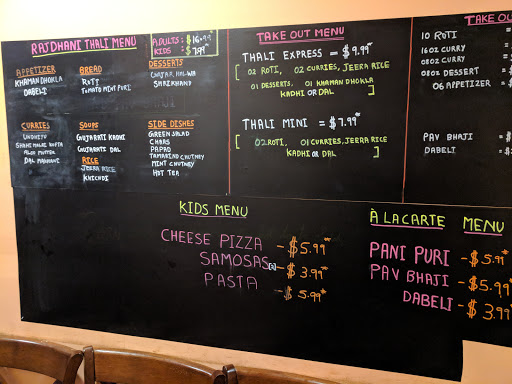 RAJDHANI THALI MENU
ADULTS:
KIDS :
APPETIZER
KHAMAN DHOKLA
DABELI
BREAD
ROTI
TOMATO MINT PURI
DESSERTS
GAJAR HALWA
SHRIKHAND
CURRIES
UNDHIYU
SHAHI MALAI KOFTA
ALOO MUTTER
DAL MAKHANI
SOUPS
GUJARATI KADHI
GUJARATI DAL
RICE
JEERA RICE
KHICHDI
SIDE DISHES
GREEN SALAD
CHAAS
PAPAD
TAMARIND CHUTNEY
MINT CHUTNEY
HOT TEA
TAKE OUT MENU
THALI EXPRESS = $9.99
[ 02 ROTI, 02 CURRIES, JEERA RICE
01 DESSERTS, 01 KHAMAN DHOKLA
KADHI OR DAL ]
THALI MINI = $7.99
[ 02 ROTI, 01 CURRIES, JEERA RICE
KADHI OR DAL ]
TAKE OUT
10 ROTI =
16OZ CURRY =
08OZ CURRY =
08OZ DESSERT =
06 APPETIZER =
PAV BHAJI = $
DABELI = $
KIDS MENU
CHEESE PIZZA - $5.99
SAMOSAS - $3.99
PASTA - $5.99
À LA CARTE MENU
PANI PURI - $5.99
PAV BHAJI - $5.99
DABELI - $3.99